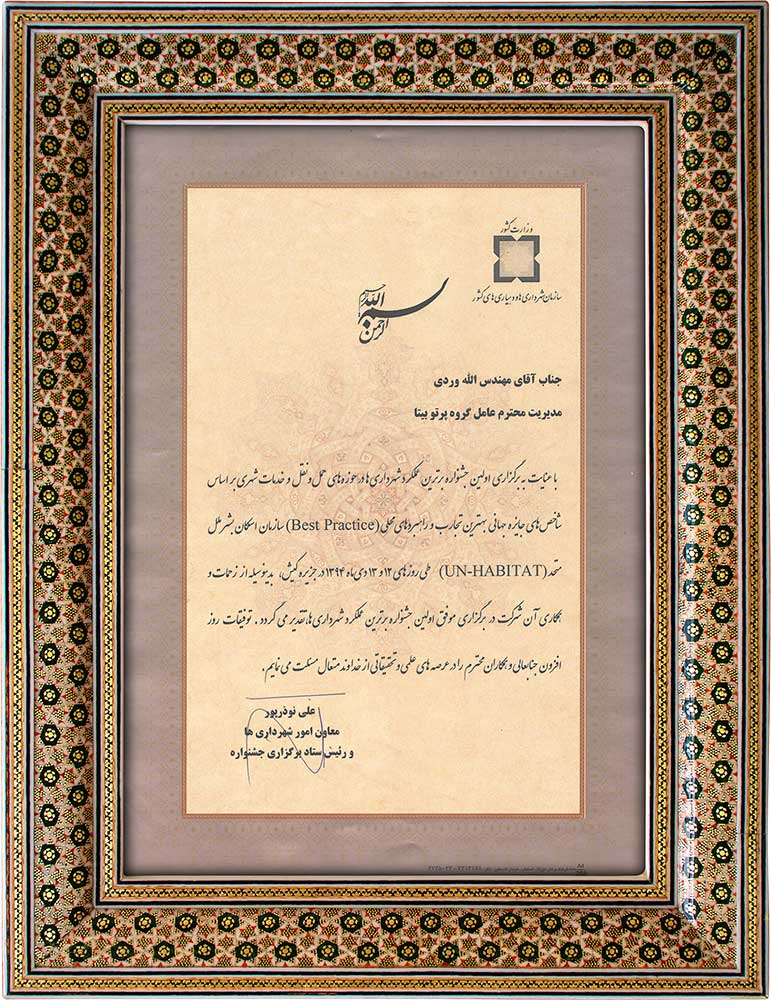 وزارت کشور
سازمان شهرداری ها و دهیاری های کشور
بسم الله الرحمن الرحیم
جناب آقای مهندس الله وردی
مدیریت محترم عامل گروه پرتو بیتا
با عنایت به برگزاری اولین جشنواره برترین عملکرد شهرداری ها در حوزه های حمل و نقل و خدمات شهری بر اساس
شاخص های جایزه جهانی بهترین تجارب و راهبردهای محلی (Best Practice) سازمان اسکان بشر ملل
متحد (UN-HABITAT) طی روزهای ۱۲ و ۱۳ دی ماه ۱۳۹۴ در جزیره کیش، بدینوسیله از زحمات و
همکاری آن شرکت در برگزاری موفق اولین جشنواره برترین عملکرد شهرداری ها، تقدیر می گردد . توفیقات روز
افزون جنابعالی و همکاران محترم را در عرصه های علمی و تحقیقاتی از خداوند متعال مسئلت می نماییم .
علی نوذرپور
معاون امور شهرداری ها
و رئیس ستاد برگزاری جشنواره